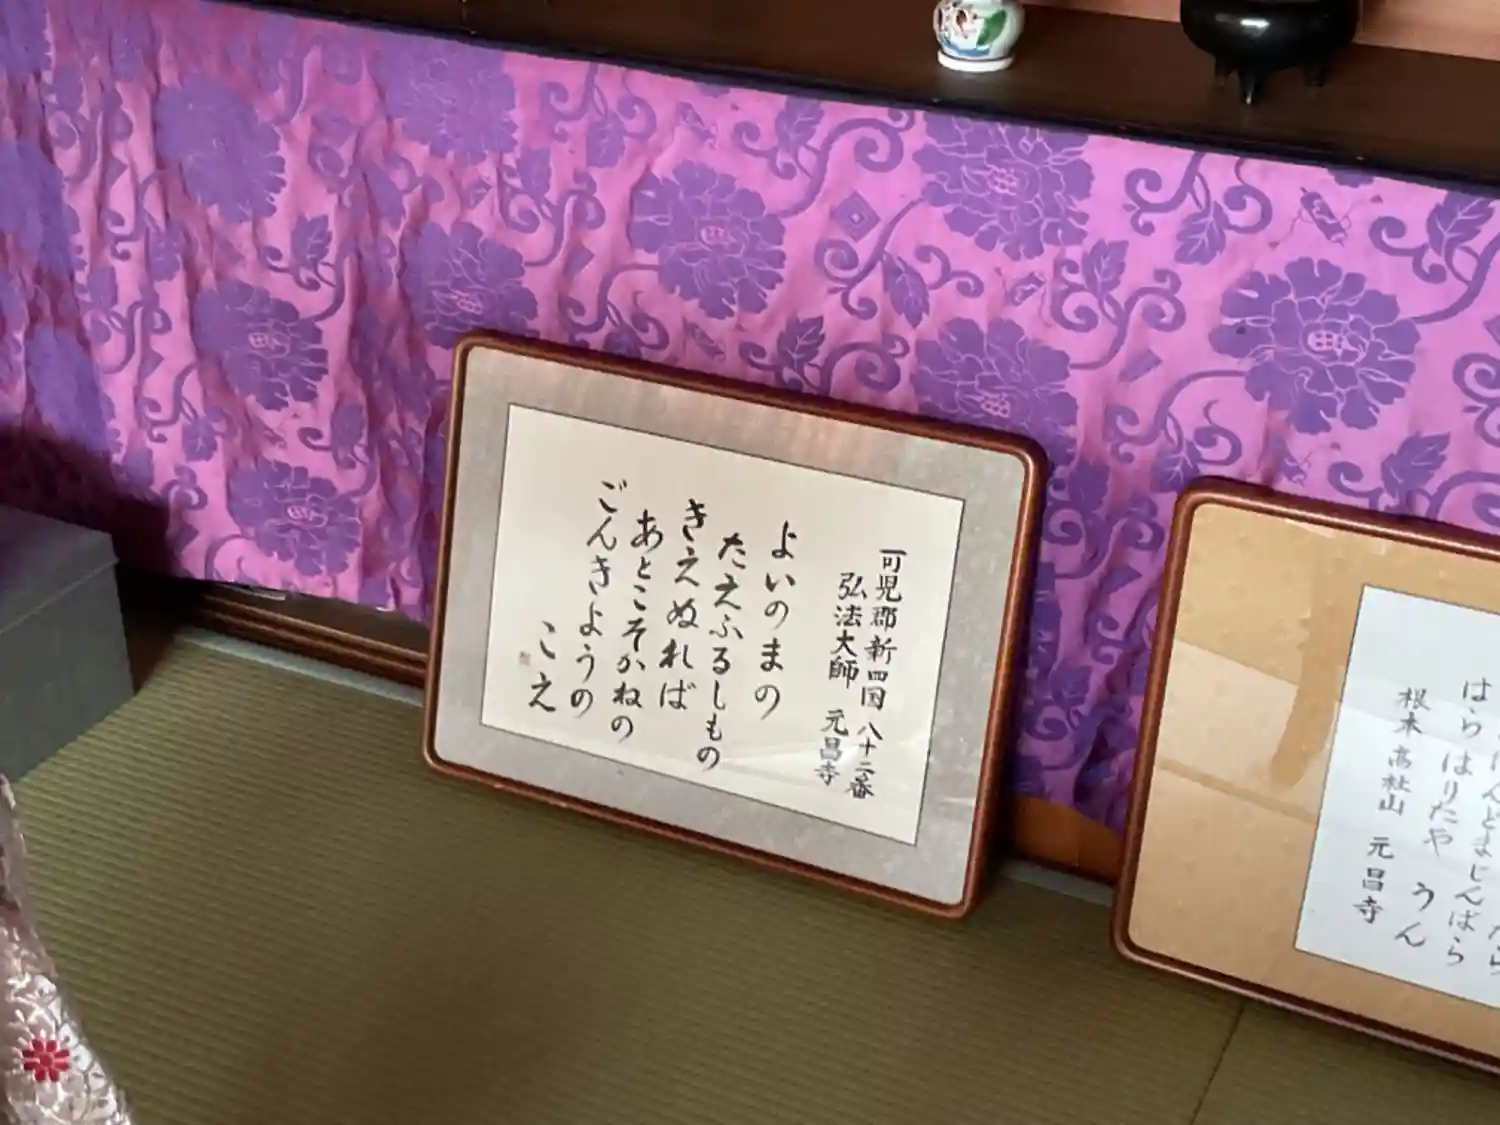 可児郡新四国 八十二番
弘法大師 元昌寺
よいのまの
たえふるしもの
きえぬれば
あとこそかねの
ごんきようの
こえ
んどまじんばら
はら はりたや うん
根本 高社山 元昌寺